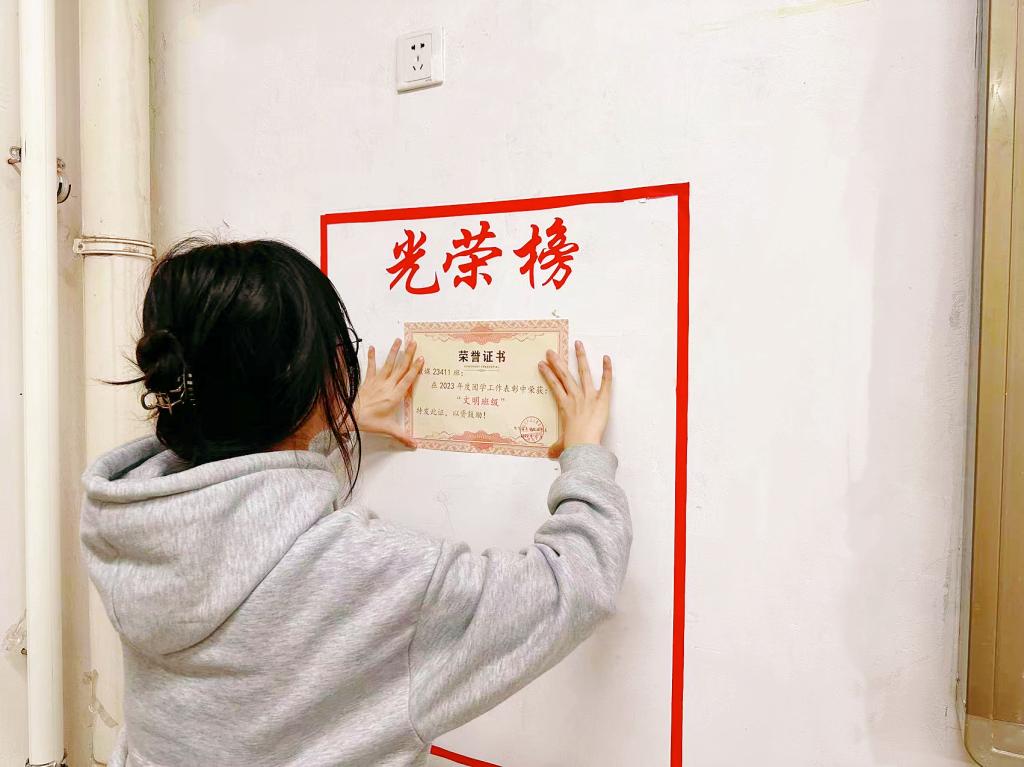 光荣榜
荣誉证书
媒 23411 班:
在 2023 年度国学工作表彰中荣获:
“文明班级”
特发此证，以资鼓励!